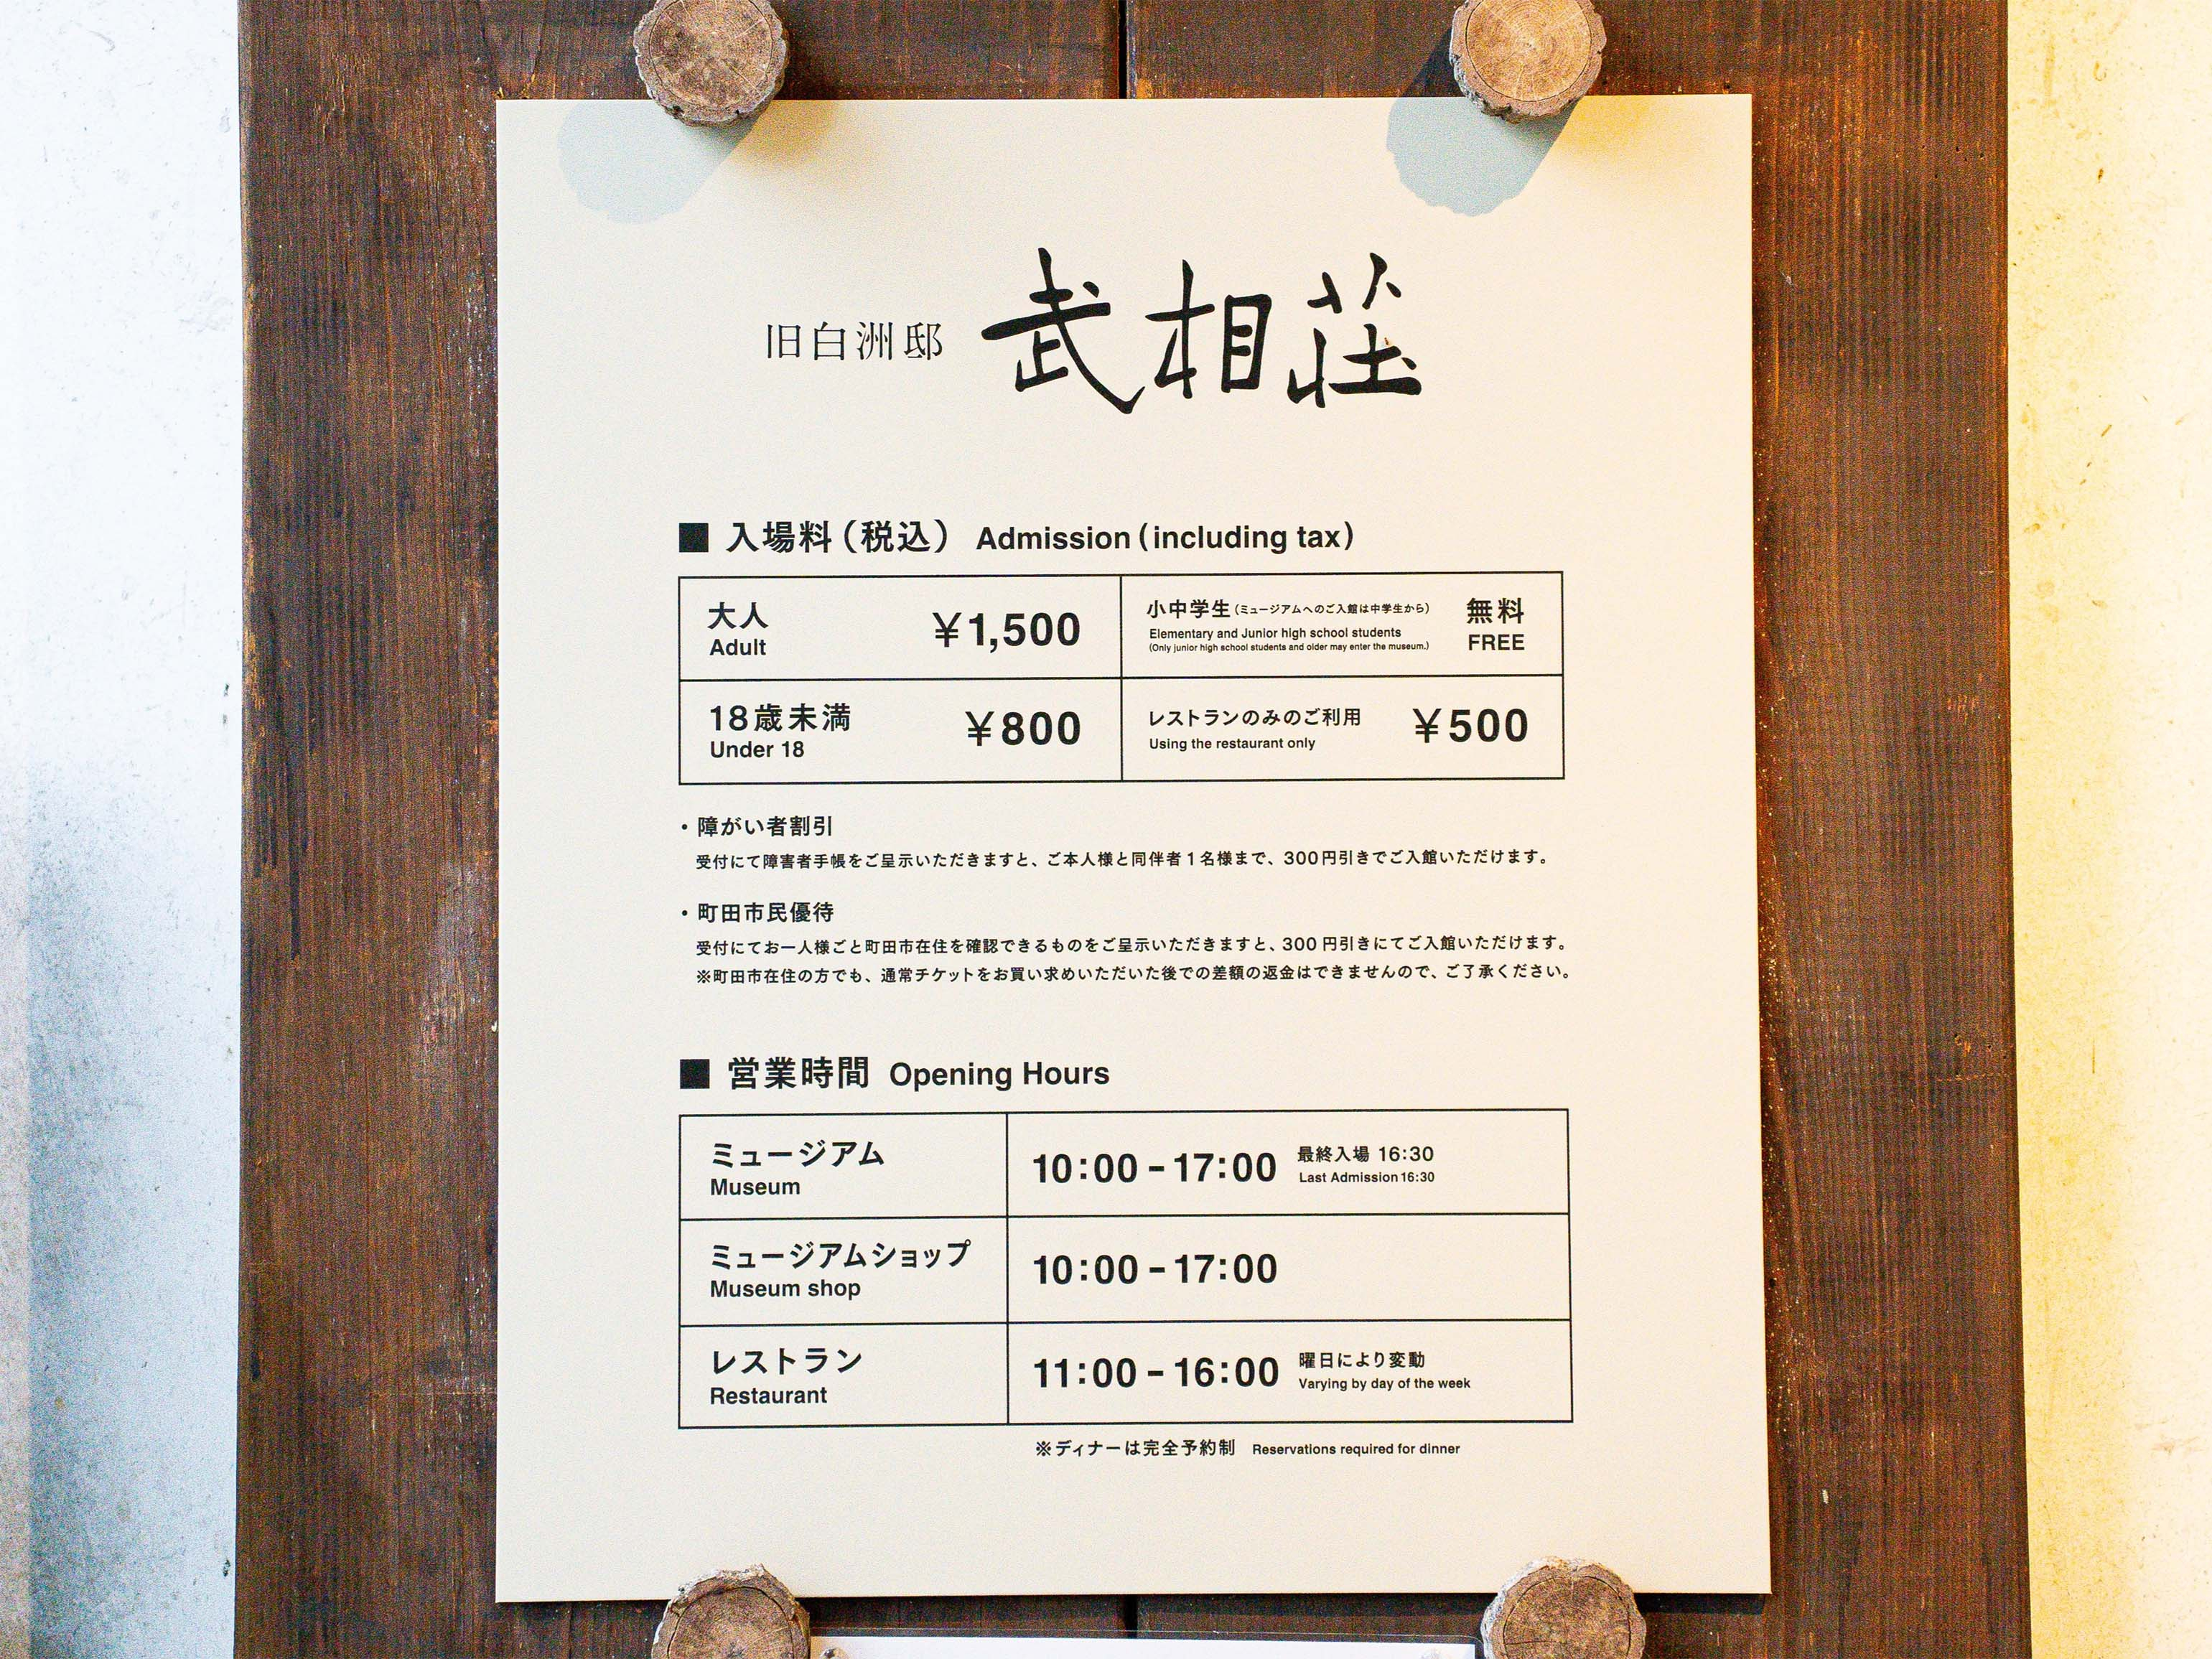 旧白洲邸 武相荘
■ 入場料（税込） Admission (including tax)
大人 ¥1,500
Adult
小中学生（ミュージアムへのご入館は中学生から） 無料
Elementary and Junior high school students FREE
(Only junior high school students and older may enter the museum.)
18歳未満 ¥800
Under 18
レストランのみのご利用 ¥500
Using the restaurant only
・障がい者割引
受付にて障害者手帳をご呈示いただきますと、ご本人様と同伴者1名様まで、300円引きでご入館いただけます。
・町田市民優待
受付にてお一人様ごと町田市在住を確認できるものをご呈示いただきますと、300円引きにてご入館いただけます。
※町田市在住の方でも、通常チケットをお買い求めいただいた後での差額の返金はできませんので、ご了承ください。
■ 営業時間 Opening Hours
ミュージアム
Museum
10:00 - 17:00
最終入場 16:30
Last Admission 16:30
ミュージアムショップ
Museum shop
10:00 - 17:00
レストラン
Restaurant
11:00 - 16:00
曜日により変動
Varying by day of the week
※ディナーは完全予約制 Reservations required for dinner